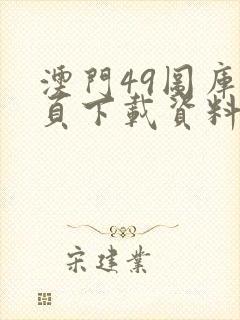 澳門49圖庫
頁下載資料
宋建業